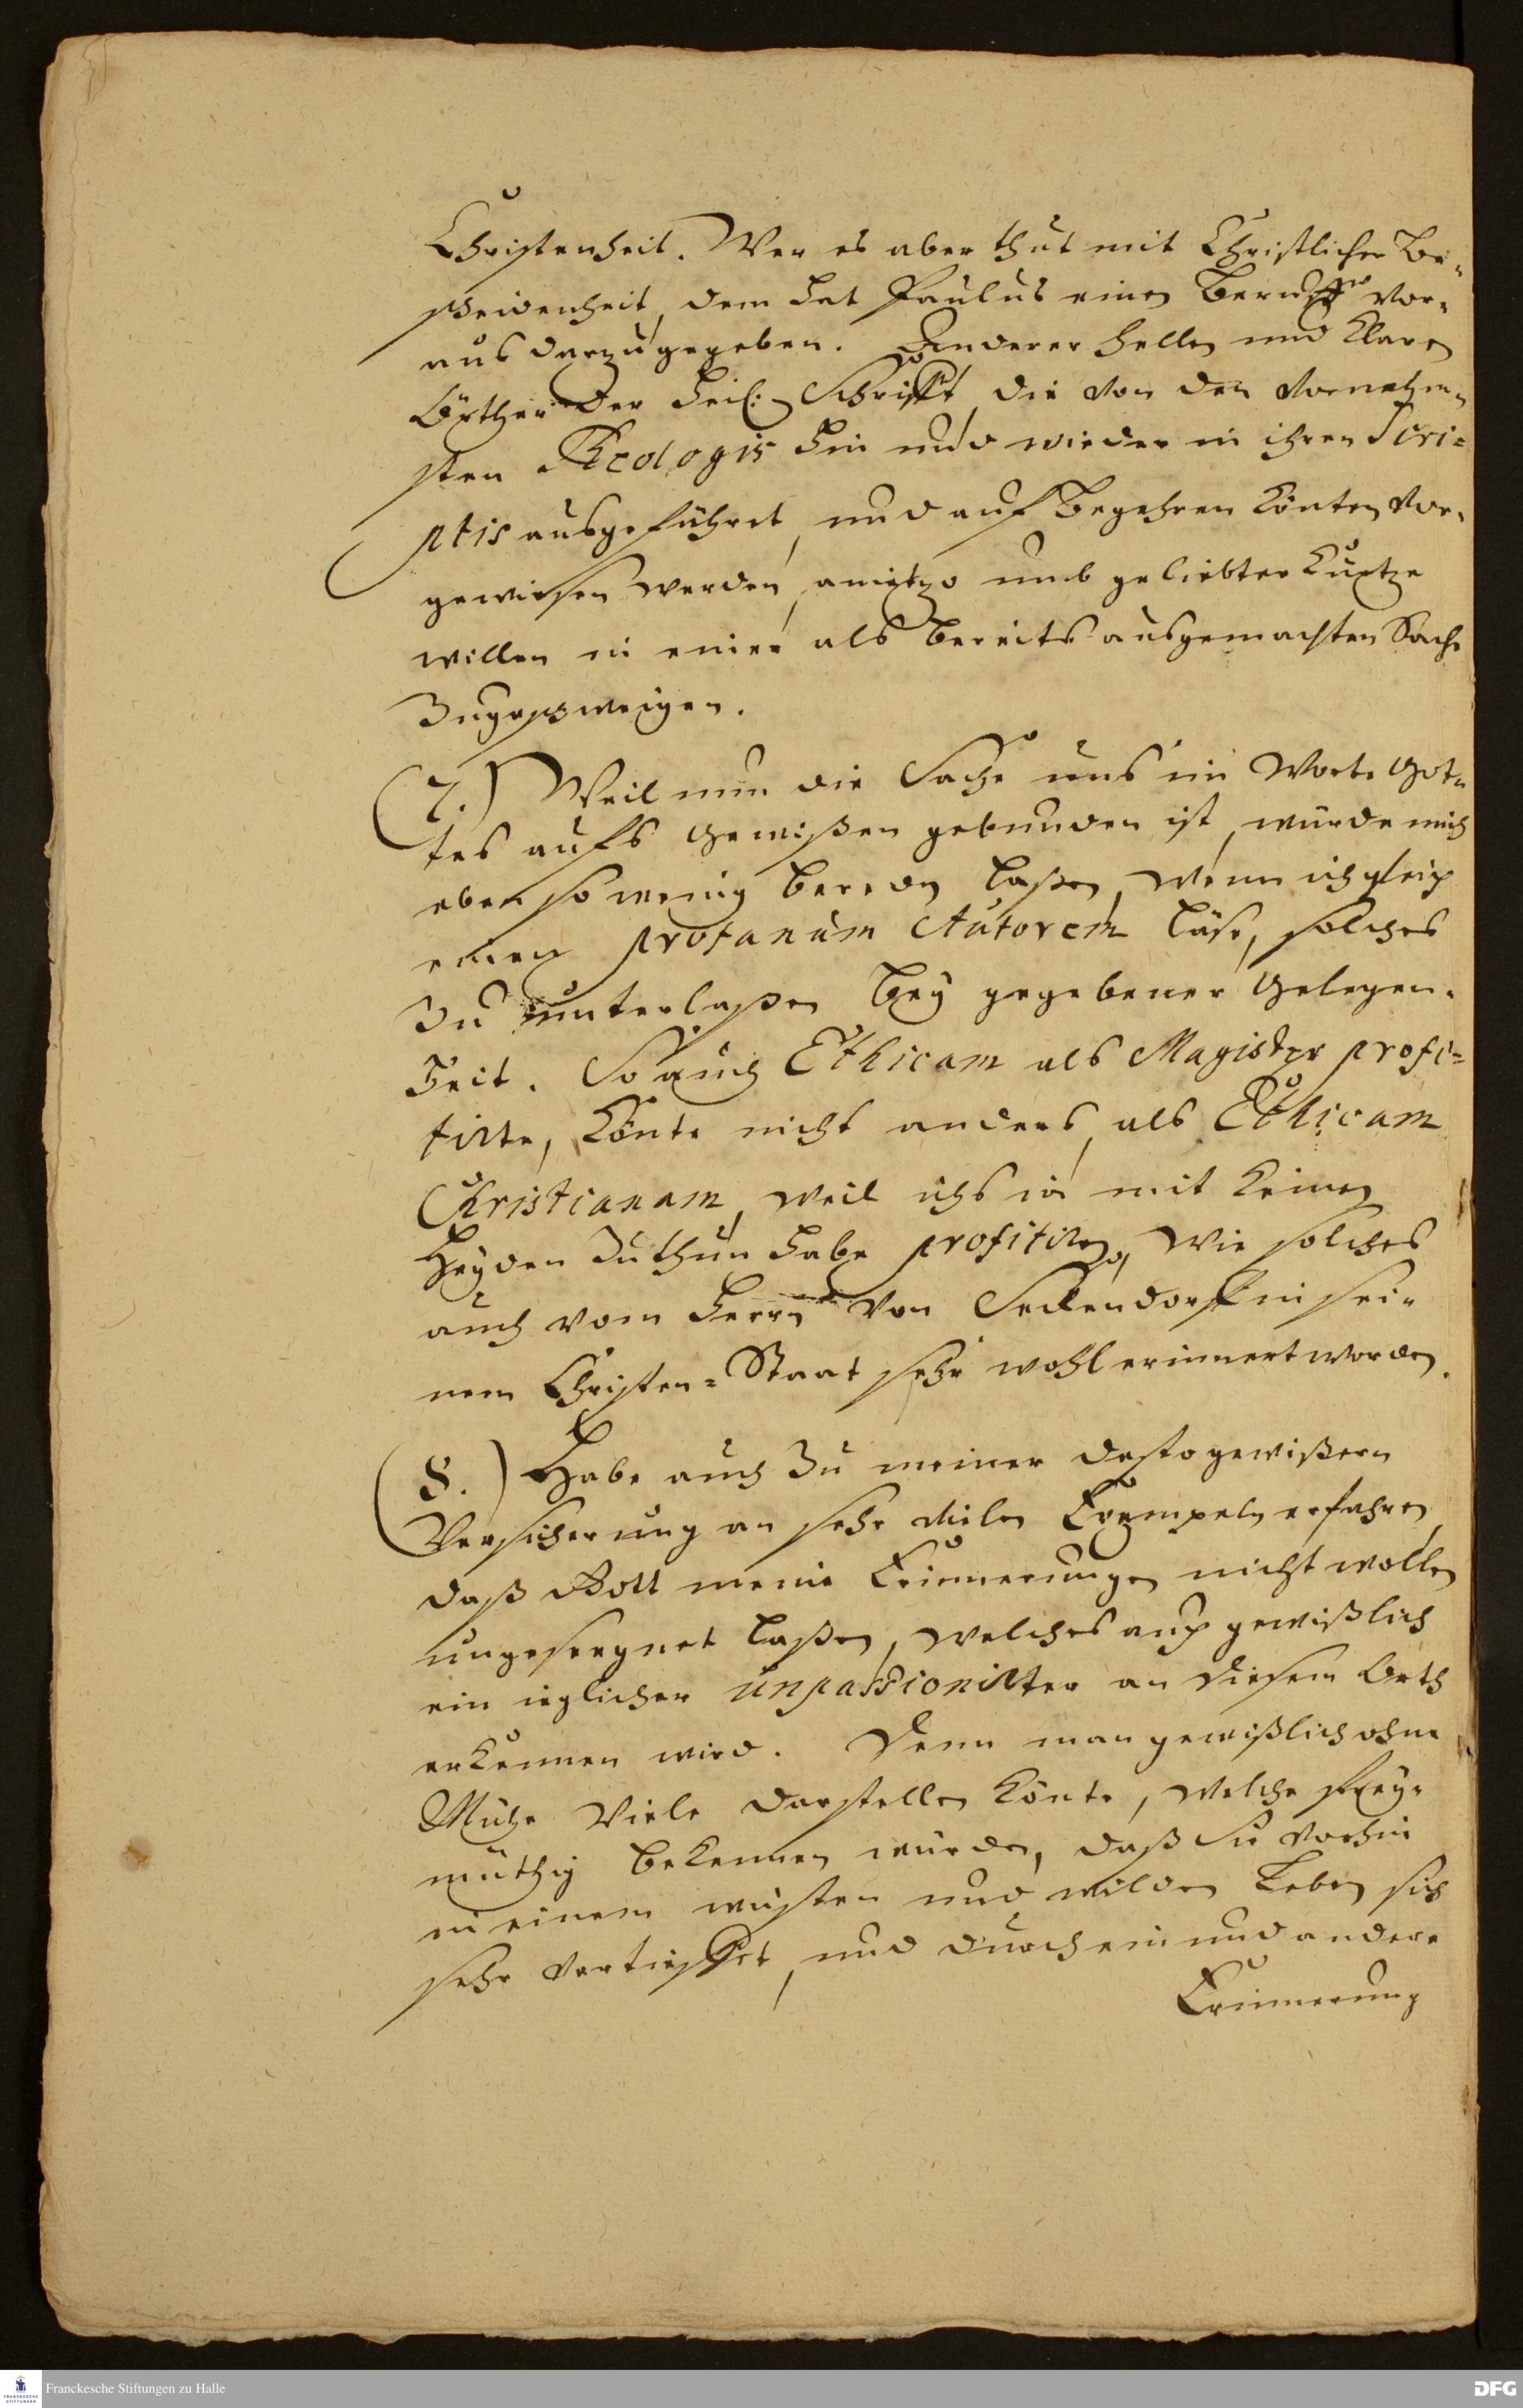 Christenheit. Wer es aber thut mit Christlicher Be-
scheidenheit, dem hat Paulus einen Beruff vor-
aus darzu gegeben. Anderer hellen und klaren
Örther der Heil: Schrifft, die von den vornehm-
sten Theologis hin und wieder in ihren Scri=
ptis ausgeführet, und auf Begehren könten vor-
gewiesen werden, anietzo umb geliebter Kürtze
willen in einer als bereits ausgemachten Sache
Zugeschweigen.
(7.) Weil nun die Sache uns im Worte Got-
tes aufs Gewißen gebunden ist, würde mich
eben so wenig bereden laßen, wenn ich gleich
einen profanum Autorem läse, solches
Zu unterlaßen bey gegebener Gelegen-
heit. So auch Ethicam als Magister profi=
tirte, könte nicht anders, als Ethicam
Christianam, weil ichs ja mit keinen
Heyden Zuthun habe profitiren, wie solches
auch vom Herrn von Seckendorff in sei-
nem Christen=Staat sehr wohl erinnert worden.
(8.) Habe auch Zu meiner desto gewißern
Versicherung an sehr vielen Exempeln erfahren,
daß Gott meine Erinnerungen nicht wollen
ungesegnet laßen, welches auch gewißlich
ein ieglicher unpassionirter an diesem Orth
erkennen wird. Denn man gewißlich ohne
Mühe viele darstellen könte, welche frey-
müthig bekennen würden, daß Sie vorhin
in einem wüsten und wilden Leben sich
sehr vertieffet, und durch ein und andere
Erinnerung
Franckesche Stiftungen zu Halle
DFG